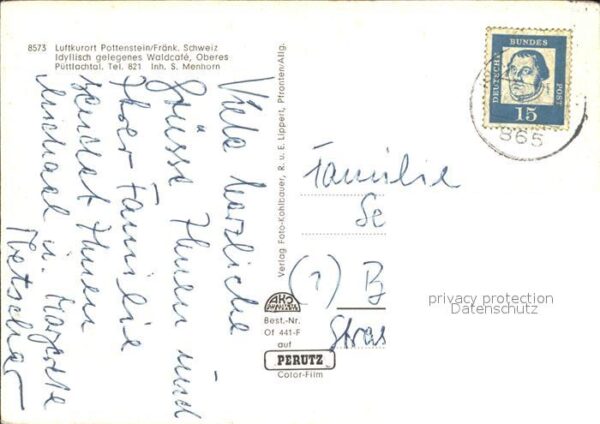 8573 Luftkurort Pottenstein/Fränk. Schweiz
Idyllisch gelegenes Waldcafé, Oberes
Püttlachtal. Tel. 821 Inh. S. Menhorn
Viele herzliche
Grüsse Ihnen und
Ihrer Familie
sendet Ihnen
Michael u. Margarete
Verlag Foto-Kohlbauer, R. u. E. Lippert, Pfronten/Allg.
DEUTSCHE
BUNDES
POST
15
865
Familie
Se
(1) B
Stras
AKO
Best.-Nr.
Of 441-F
auf
PERUTZ
Color-Film
privacy protection
Datenschutz